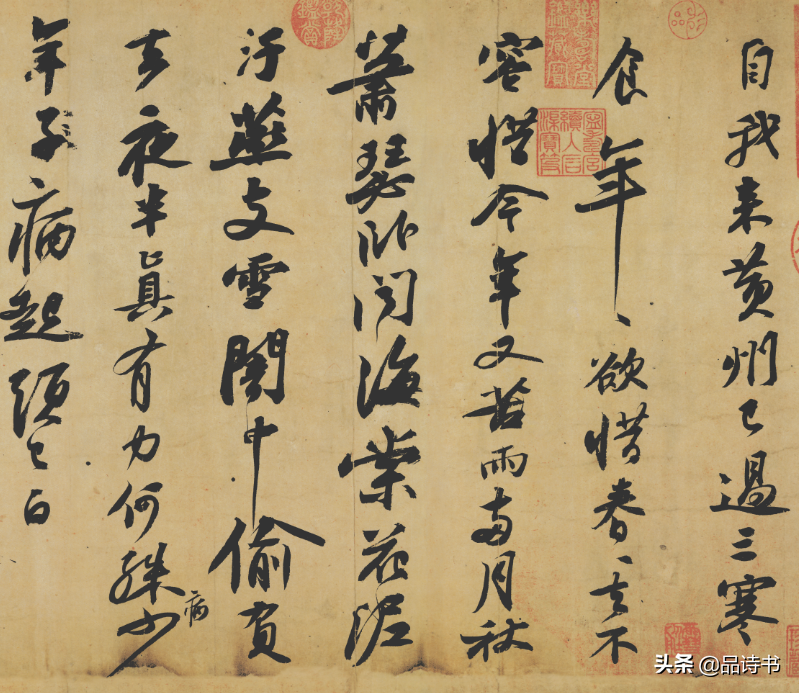 自我来黄州已過三寒
食年〻欲惜春〻去不
容惜今年又苦雨兩月秋
蕭瑟卧聞海棠花泥
汙燕支雪闇中偷負
去夜半真有力何殊少
病
年子病起頭已白
头条 @品诗书